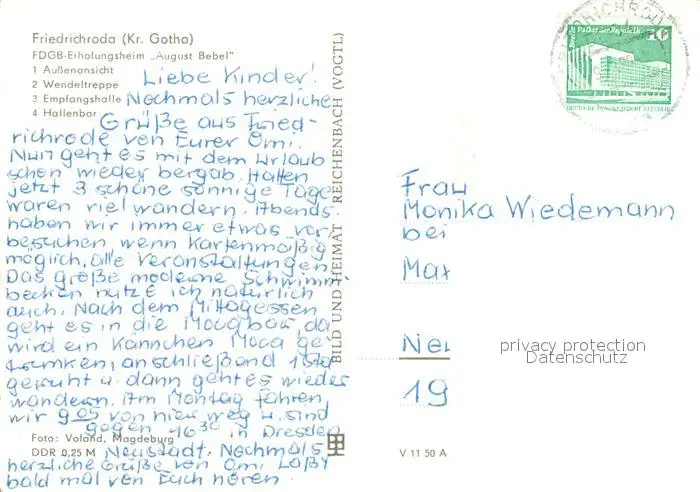 Friedrichroda (Kr. Gotha)
FDGB-Erholungsheim „August Bebel"
1 Außenansicht
2 Wendeltreppe
3 Empfangshalle
4 Hallenbar
Liebe Kinder!
Nochmals herzliche
Grüße aus Fried-
richrode von Eurer Omi.
Nun geht es mit dem Urlaub
schon wieder bergab. Hatten
jetzt 3 schöne sonnige Tage
waren viel wandern. Abends
haben wir immer etwas vor
besuchen, wenn kartenmäßig
möglich, alle Veranstaltungen
Das große moderne Schwimm
becken nutze ich natürlich
auch. Nach dem Mittagessen
geht es in die Moccabar, da
wird ein Kännchen Moca ge-
trunken, anschließend 1 Std
geruht u. dann geht es wieder
wandern. Am Montag fahren
wir 9 05 von hier weg u. sind
gegen 16 30 in Dresden
Neustadt. Nochmals
herzliche Grüße von Omi. Laßt
bald mal von Euch hören.
Foto: Voland, Magdeburg
DDR 0,25 M
BILD UND HEIMAT REICHENBACH (VOGTL)
V 11 50 A
Berlin Palast der Republik
10
DEUTSCHE DEMOKRATISCHE REPUBLIK
Frau
Monika Wiedemann
bei
Max
19
privacy protection
Datenschutz